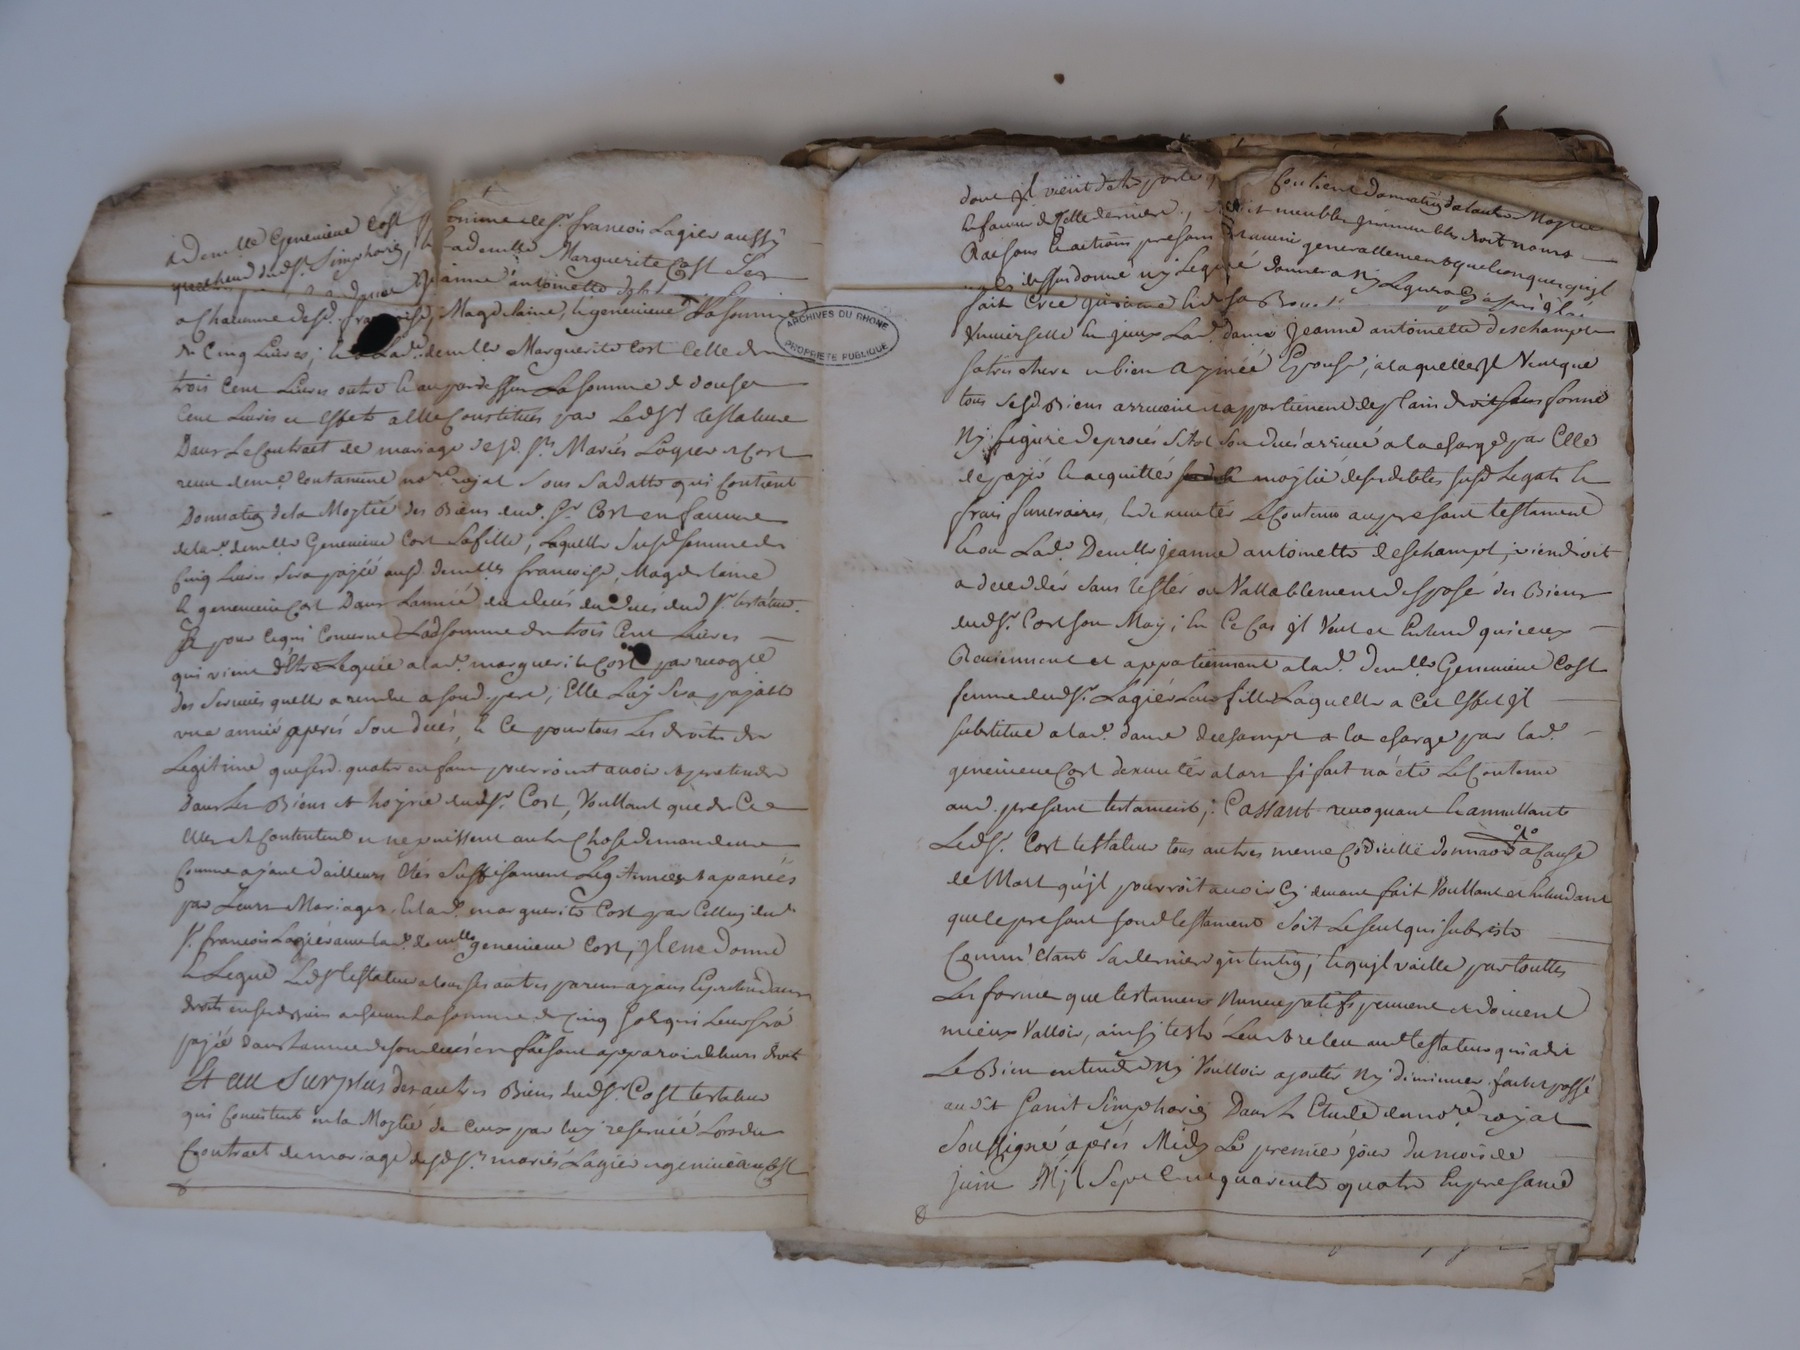 a Demlle Genevieve Cost femme de Sr. francois Lagier aussÿ
marchand dud. St. Simphorien, la demlle Marguerite Cost
dame Jeanne antoinette
a Chacune desd. francoise, Magdelaine, & genevieve La somme
de Cinq Livres; & a Lad. demlle Marguerite Cost Celle de
ARCHIVES DU RHONE
PROPRIETE PUBLIQUE
trois Cent Livres outre & au pardessus La somme de douse
Cent Livres en effets a elle Constitués par Led. Sr. testateur
Dans Le Contrait de mariage desd. Srs. Mariés Lagier & Cost
receu de me. Coutanture nore. roÿal sous sa datte qui Contient
Donnation de la Moÿtié des Biens dud. Sr. Cost en faveur
de lad. demlle Genevieve Cost sa fille, Laquelle susd. somme de
Cinq Livres sera païée ausd. demlles francoise, Magdelaine
& genevieve Cost Dans L'année du decés dud. Sr. testateur.
Et pour Ce qui Concerne Lad. somme de trois Cent Livres
qui vient d'Etre Leguée a lad. marguerite Cost par
des services quelle a rendu a sond. pere, Elle Luÿ sera paÿable
une année aprés son decés, & Ce pour tous Les droits de
Legitime que sesd. quatre enfans pourroint avoir & pretendre
Dans Les Biens et hoÿrie dud. Sr. Cost, Voullant que de Ce
Elles se Contentent et ne puissent autre Chose demander
Comme aÿant d'ailleurs Etés suffisament Legitimées & apanées
par Leurs Mariages, & lad. marguerite Cost par Celluÿ dud.
Sr. francois Lagier avec lad. demlle genevieve Cost, Il en donne
& Legue Led. Sr. testateur a tous ses autres parens aÿans & pretendans
droits en sesd. biens a chacun La somme de Cinq sols qui Leur sera
païé dans L'année de son decés en faisant apparoir de leurs droits
Et au surplus des autres Biens dud. Sr. Cost testateur
qui Consistent en la Moÿtié de Ceux par luÿ reservée Lors du
Contrait de mariage desd. Srs. mariés Lagier & genevieve Cost
dont il vient d'etre parlé Contient donnation de l'autre Moÿtié
en faveur de Cette derniere, meubles & immeubles droits noms
Raisons & actions presens & avenir generallement quelconques qu'il
n'a ci dessus donné nÿ Legué donnera nÿ Leguera Ci aprés il a
fait Créé &
Universelle Lad. dame Jeanne antoinette deschamps
sa trés chere & bien aÿmée Epouse, a laquelle il Veut que
tous sesd. Biens arrivent & appartienent de plain droit sans forme
Nÿ figure de procés sitot son decés arrivé a la charge par Elle
de païer & acquitter moÿtié de ses dettes susd. Legats &
frais funeraires, & d'executer Le Contenu au present testament
& ou Lad. Demlle jeanne antoinette deschamps, viendroit
a deceder sans tester ou Vallablement disposer des Biens
dud. Sr. Cost son Maÿ; En Ce Cas il Veut et Entend qu'iceux
Reviennent et appartiennent a lad. demlle Genevieve Cost
femme dud. Sr. Lagier Leur fille Laquelle a Cet effet il
substitue a lad. dame deschamps a la charge par lad.
genevieve Cost d'executer alors si fait n'a été Le Contenu
aud. present testament; Cassant revoquant & annullant
Led. Sr. Cost testateur tous autres meme Codicille donnaon a Cause
de Mort qu'il pourroit avoir Cÿ devant fait Voullant et Entendant
que le present sond. testament soit Le seul qui subsiste
Comm' étant sa derniere intention; & qu'il vaille par touttes
Les formes que testament Nuncupatifs peuvent et doivent
mieux Valloir, ainsÿ testé Leu & releu aud. testateur qui a dit
Le Bien entendre nÿ Voulloir ajouter nÿ diminuer. fait & passé
au dit Saint Simphorien Dans L'Etude du nore. roÿal
soussigné aprés Midÿ Le premier jour du mois de
juin Mil Sept Cent quarente quatre En presance